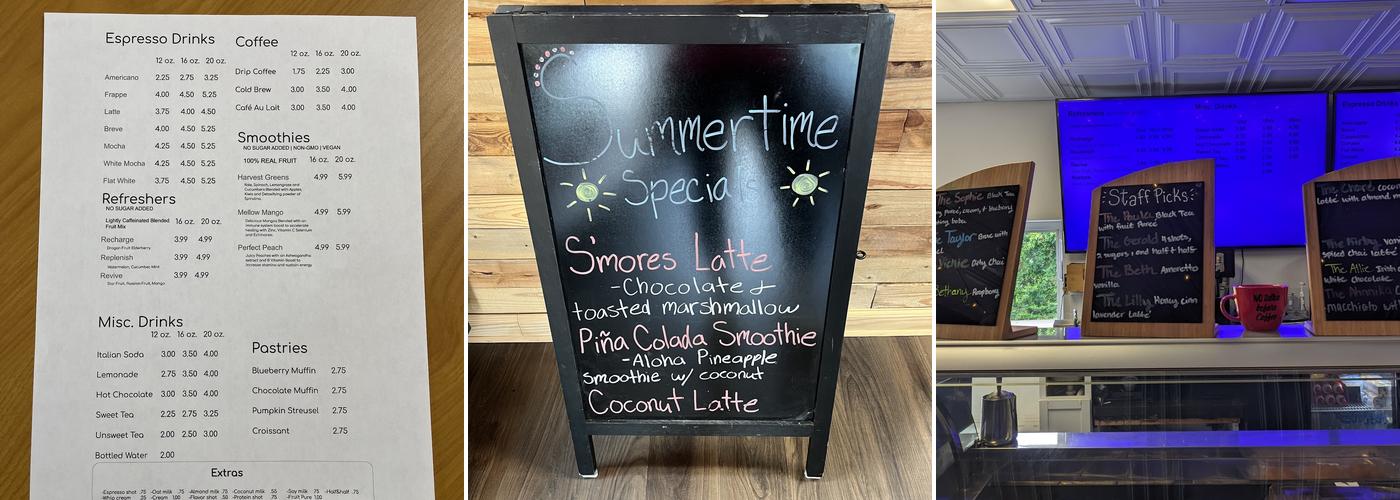 Espresso Drinks
12 oz. 16 oz. 20 oz.
Americano 2.25 2.75 3.25
Frappe 4.00 4.50 5.25
Latte 3.75 4.00 4.50
Breve 4.00 4.50 5.25
Mocha 4.25 4.50 5.25
White Mocha 4.25 4.50 5.25
Flat White 3.75 4.50 5.25
Refreshers
NO SUGAR ADDED
Lightly Caffeinated Blended
Fruit Mix
16 oz. 20 oz.
Recharge 3.99 4.99
Dragon Fruit Elderberry
Replenish 3.99 4.99
Watermelon, Cucumber, Mint
Revive 3.99 4.99
Star Fruit, Passion Fruit, Mango
Misc. Drinks
12 oz. 16 oz. 20 oz.
Italian Soda 3.00 3.50 4.00
Lemonade 2.75 3.50 4.00
Hot Chocolate 3.00 3.50 4.00
Sweet Tea 2.25 2.75 3.25
Unsweet Tea 2.00 2.50 3.00
Bottled Water 2.00
Coffee
12 oz. 16 oz. 20 oz.
Drip Coffee 1.75 2.25 3.00
Cold Brew 3.00 3.50 4.00
Café Au Lait 3.00 3.50 4.00
Smoothies
NO SUGAR ADDED | NON-GMO | VEGAN
100% REAL FRUIT 16 oz. 20 oz.
Harvest Greens 4.99 5.99
Kale, Spinach, Lemongrass and
Cucumbers Blended with Apples,
Kiwis and Detoxifying Dose of
Spirulina.
Mellow Mango 4.99 5.99
Delicious Mangos Blended with an
immune system boost to accelerate
healing with Zinc, Vitamin C Selenium
and Echinacea.
Perfect Peach 4.99 5.99
Juicy Peaches with an Ashwagandha
extract and B Vitamin Boost to
increase stamina and sustain energy.
Pastries
Blueberry Muffin 2.75
Chocolate Muffin 2.75
Pumpkin Streusel 2.75
Croissant 2.75
Extras
-Espresso shot .75 -Oat milk .75 -Almond milk .75 -Coconut milk .55 -Soy milk .75 -Half&half .75
-Whip cream .25 -Cream 1.00 -Flavor shot .50 -Protein shot .75 -Fruit Pure 1.00
Summertime
Specials
S'mores Latte
-Chocolate &
toasted marshmallow
Piña Colada Smoothie
-Aloha Pineapple
Smoothie w/ coconut
Coconut Latte
Misc. Drinks
Refreshers
Espresso Drinks
The Sophie Black Tea
Taylor
chai
Bethany Raspberry
Staff Picks:
The Paula Black Tea
with fruit puree
The Gerald 4 shots,
2 sugars and half & half
The Beth Amaretto
vanilla
The Lilly Honey, cinn
lavender latte
The Chard coco
latte with almond m
The Kirby
spiced chai latte
The Allie Irish
white chocolate
macchiato